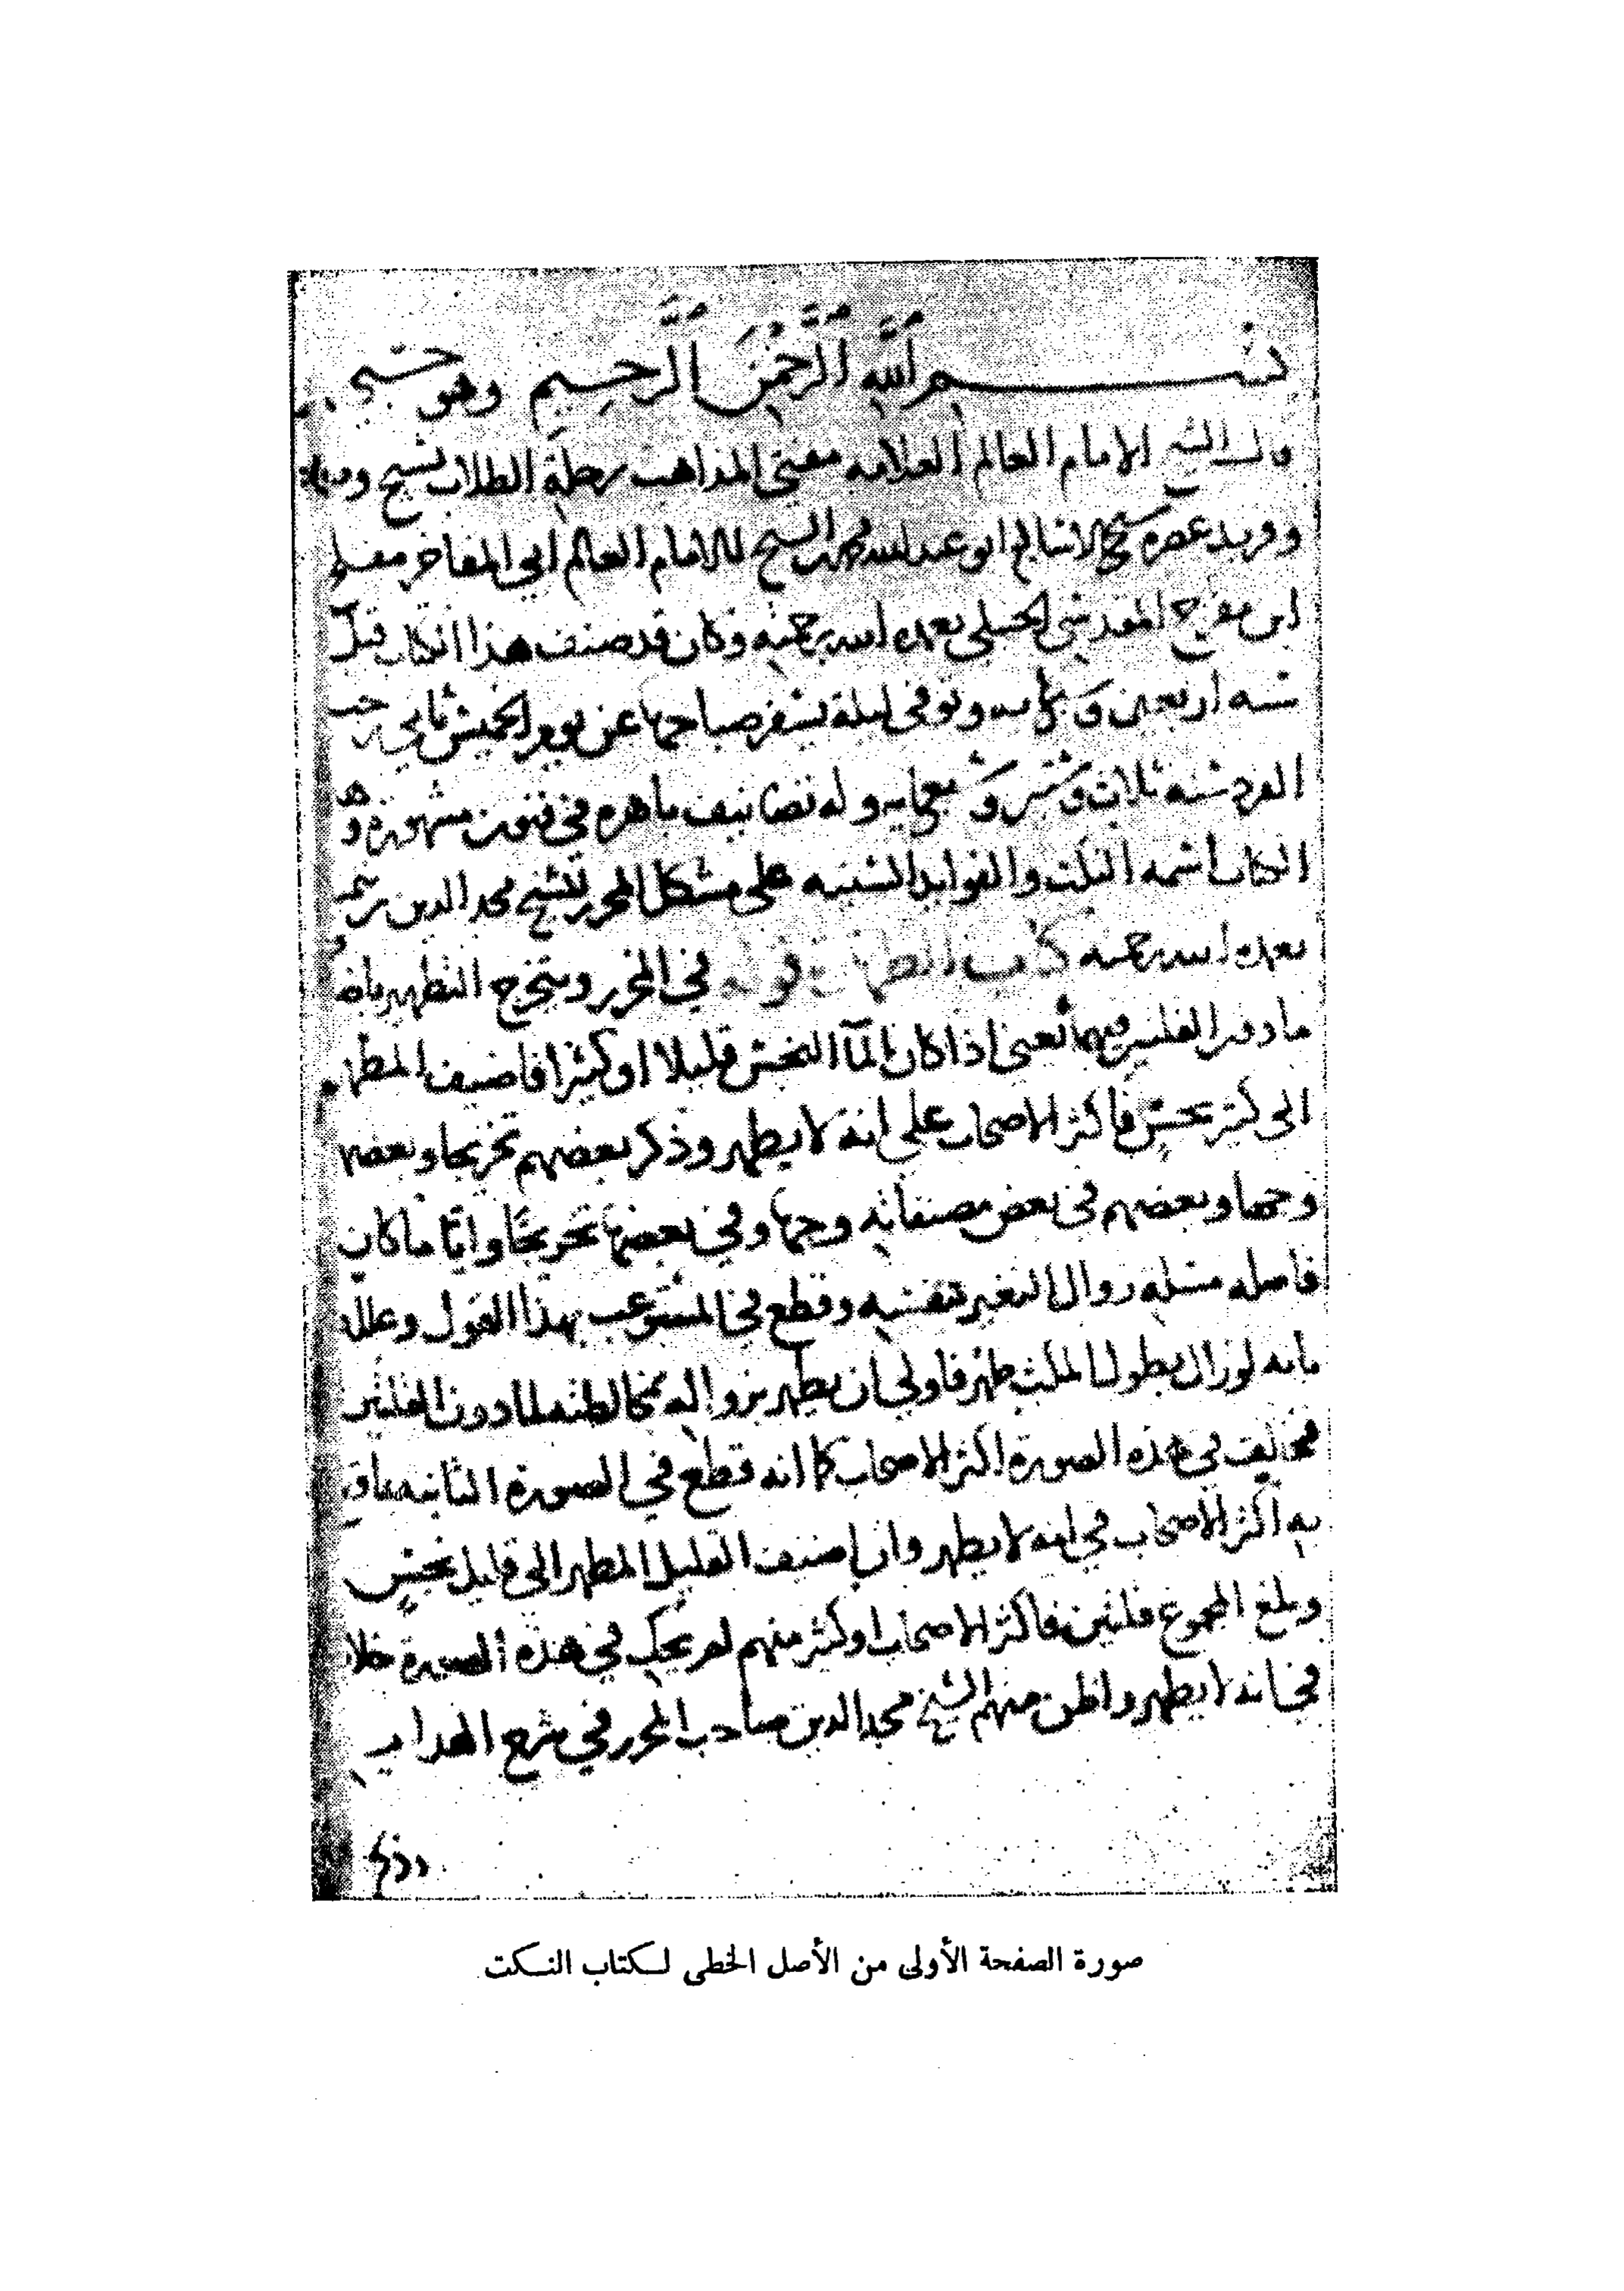 بسم الله الرحمن الرحيم وهو حسبي
قال الشيخ الامام العالم العلامه مفتي المذاهب رحلة الطلاب نسيج
وفريد عصره الاسلام ابو عبد الله محمد بن الشيخ الامام العالم ابي المفاخر مفلح
ابن مفرج المقدسي الحنبلي تغمده الله برحمته وكان قد صنف هذا الكتاب قبل
سنه اربعين و وتوفي ليلة يسفر صباحها عن يوم الخميس ثاني رجب
الفرد سنه ثلاث وستين و وله تصانيف باهره في فنون مشهورة
الكتاب اسمه النكت والفوايد السنيه على مشكل المحرر للشيخ مجد الدين
تغمده الله برحمته كتاب الطهارة قوله في المحرر ويتخرج التطهير باضافة
ما دون القلتين فيهما يعني اذا كان الماء النجس قليلا او كثيرا فاضيف المطهر
الى كثير نجس فاكثر الاصحاب على انه لا يطهر وذكر بعضهم تخريجا وبعضهم
وجها وبعضهم في بعض مصنفاته وجها وفي بعضها تخريجا وايا ما كان
فاصله مسله زوال التغير بنفسه وقطع في المستوعب بهذا القول وعلله
بانه لو زال بطول المكث طهر فاولى ان يطهر بزواله بمخالطته لما دون القلتين
فخالف في هذه الصورة اكثر الاصحاب كما انه قطع في الصورة الثانيه
به اكثر الاصحاب في انه لا يطهر وان اضيف القليل المطهر الى قليل نجس
وبلغ المجموع قلتين فاكثر الاصحاب او كثير منهم لم يحك في هذه الصورة خلافا
في انه لا يطهر واظن منهم الشيخ مجد الدين صاحب المحرر في شرح الهدايه
وذكر
صورة الصفحة الأولى من الأصل الخطى لكتاب النكت